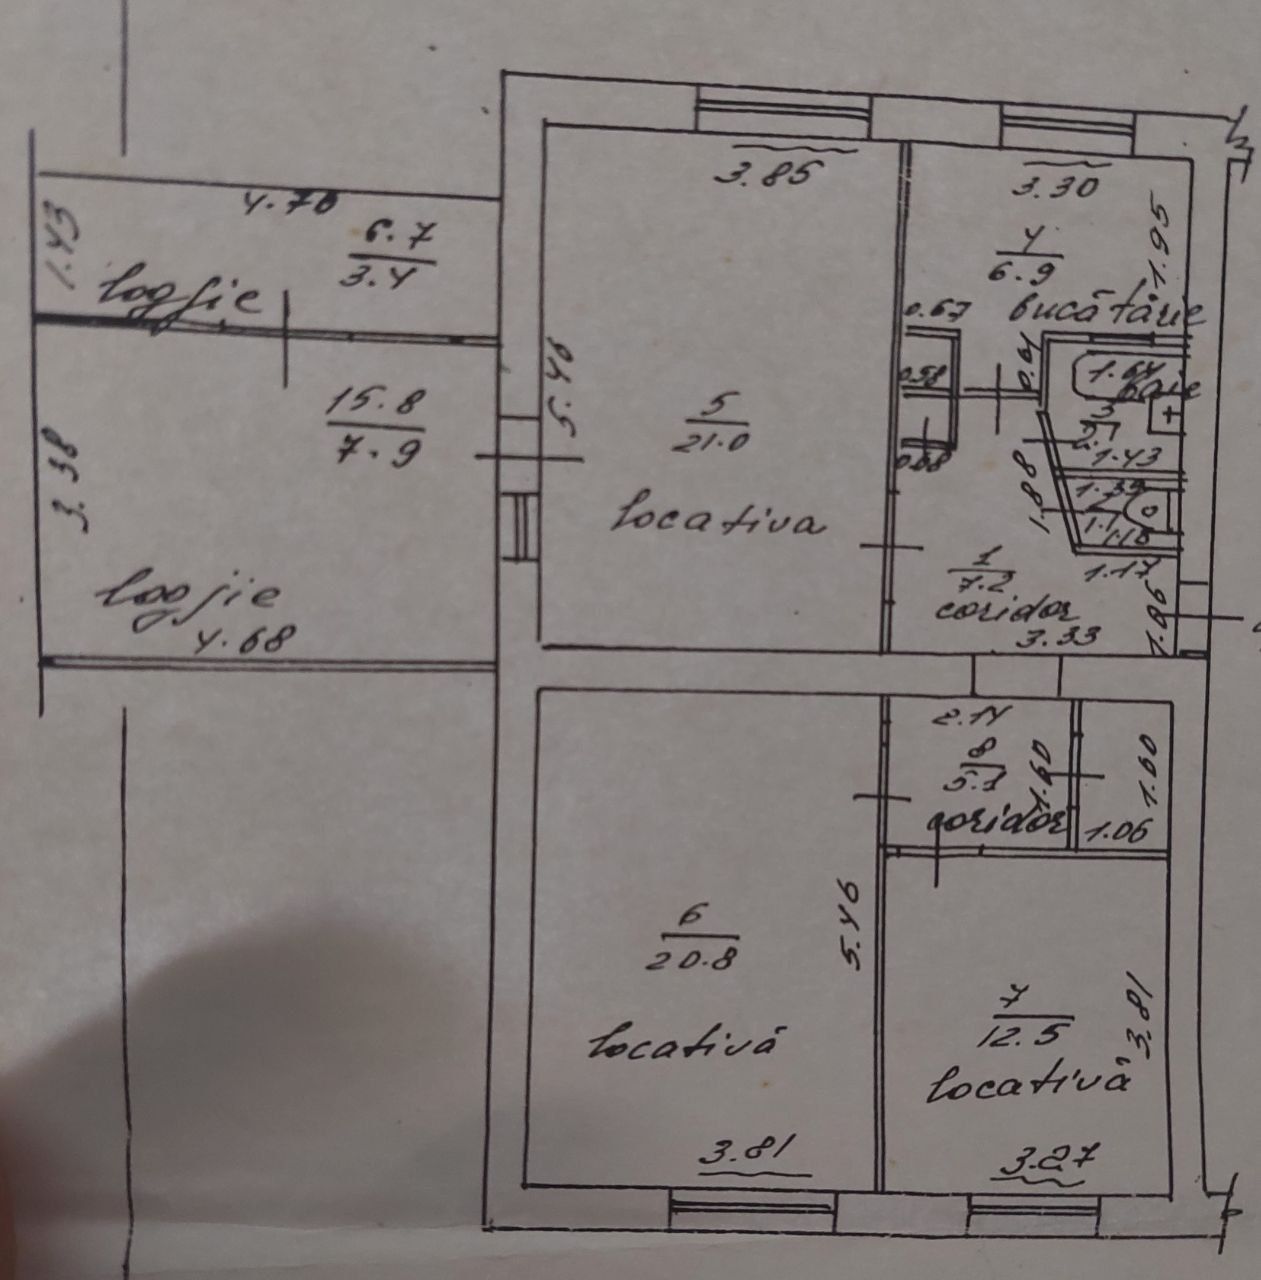 3.85
3.30
4.70
1.43
6.7
3.4
logjie
4
6.9
1.95
bucătărie
0.67
0.58
0.68
1.64
baie
3
2.7
1.43
5.46
5
21.0
locativa
15.8
7.9
3.38
logjie
4.68
1.39
2
1.1
1.18
1.88
1.17
1
7.2
coridor
3.33
2.14
8
5.1
1.60
coridor
1.60
1.06
6
20.8
locativă
5.46
7
12.5
locativă
3.81
3.81
3.27